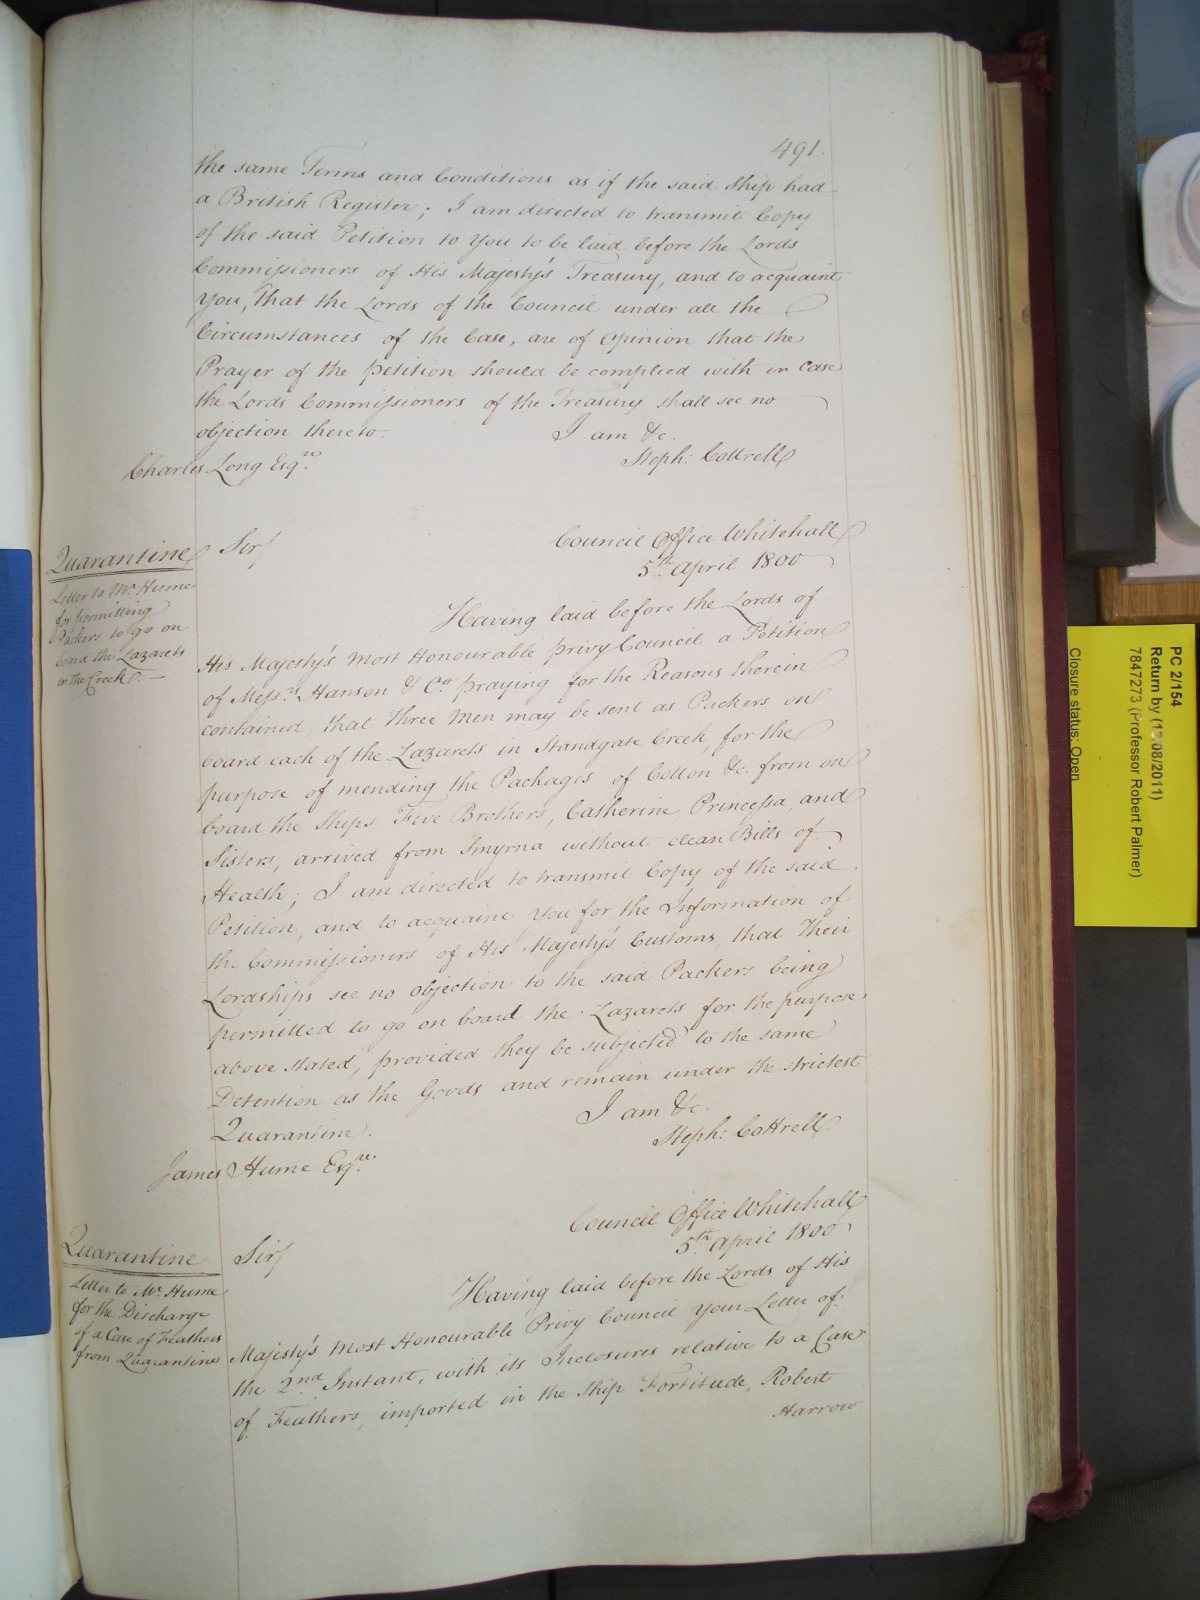 491.
the same Terms and Conditions as if the said Ship had
a British Register; I am directed to transmit Copy
of the said Petition to You to be laid before the Lords
Commissioners of His Majesty's Treasury, and to acquaint
You, that the Lords of the Council under all the
Circumstances of the Case, are of Opinion that the
Prayer of the Petition should be complied with in Case
the Lords Commissioners of the Treasury shall see no
objection thereto.
I am &c.
Steph: Cottrell
Charles Long Esqre
Quarantine
Letter to Mr. Hume
for permitting
Packers to go on
board the Lazarets
in the Creek. —
Sir/
Council Office Whitehall
5th April 1800
Having laid before the Lords of
His Majesty's most Honourable privy Council a Petition
of Messrs Hanson & Co praying for the Reasons therein
contained, that three Men may be sent as Packers on
board each of the Lazarets in Standgate Creek, for the
purpose of mending the Packages of Cotton &c. from on
board the Ships Five Brothers, Catherine, Princessa, and
Sisters, arrived from Smyrna without clean Bills of
Health; I am directed to transmit Copy of the said
Petition, and to acquaint You for the Information of
the Commissioners of His Majesty's Customs, that Their
Lordships see no objection to the said Packers being
permitted to go on board the Lazarets for the purpose
above stated, provided they be subjected to the same
Detention as the Goods and remain under the strictest
Quarantine.
I am &c.
Steph: Cottrell
James Hume Esqre
Quarantine
Letter to Mr. Hume
for the Discharge
of a Case of Feathers
from Quarantine
Sir/
Council Office Whitehall
5th April 1800
Having laid before the Lords of His
Majesty's most Honourable Privy Council Your Letter of
the 2nd Instant, with its Inclosures relative to a Case
of Feathers, imported in the Ship Fortitude, Robert
Harrow
PC 2/154
Return by (1 08/2011)
7847273 (Professor Robert Palmer)
Closure status: Open